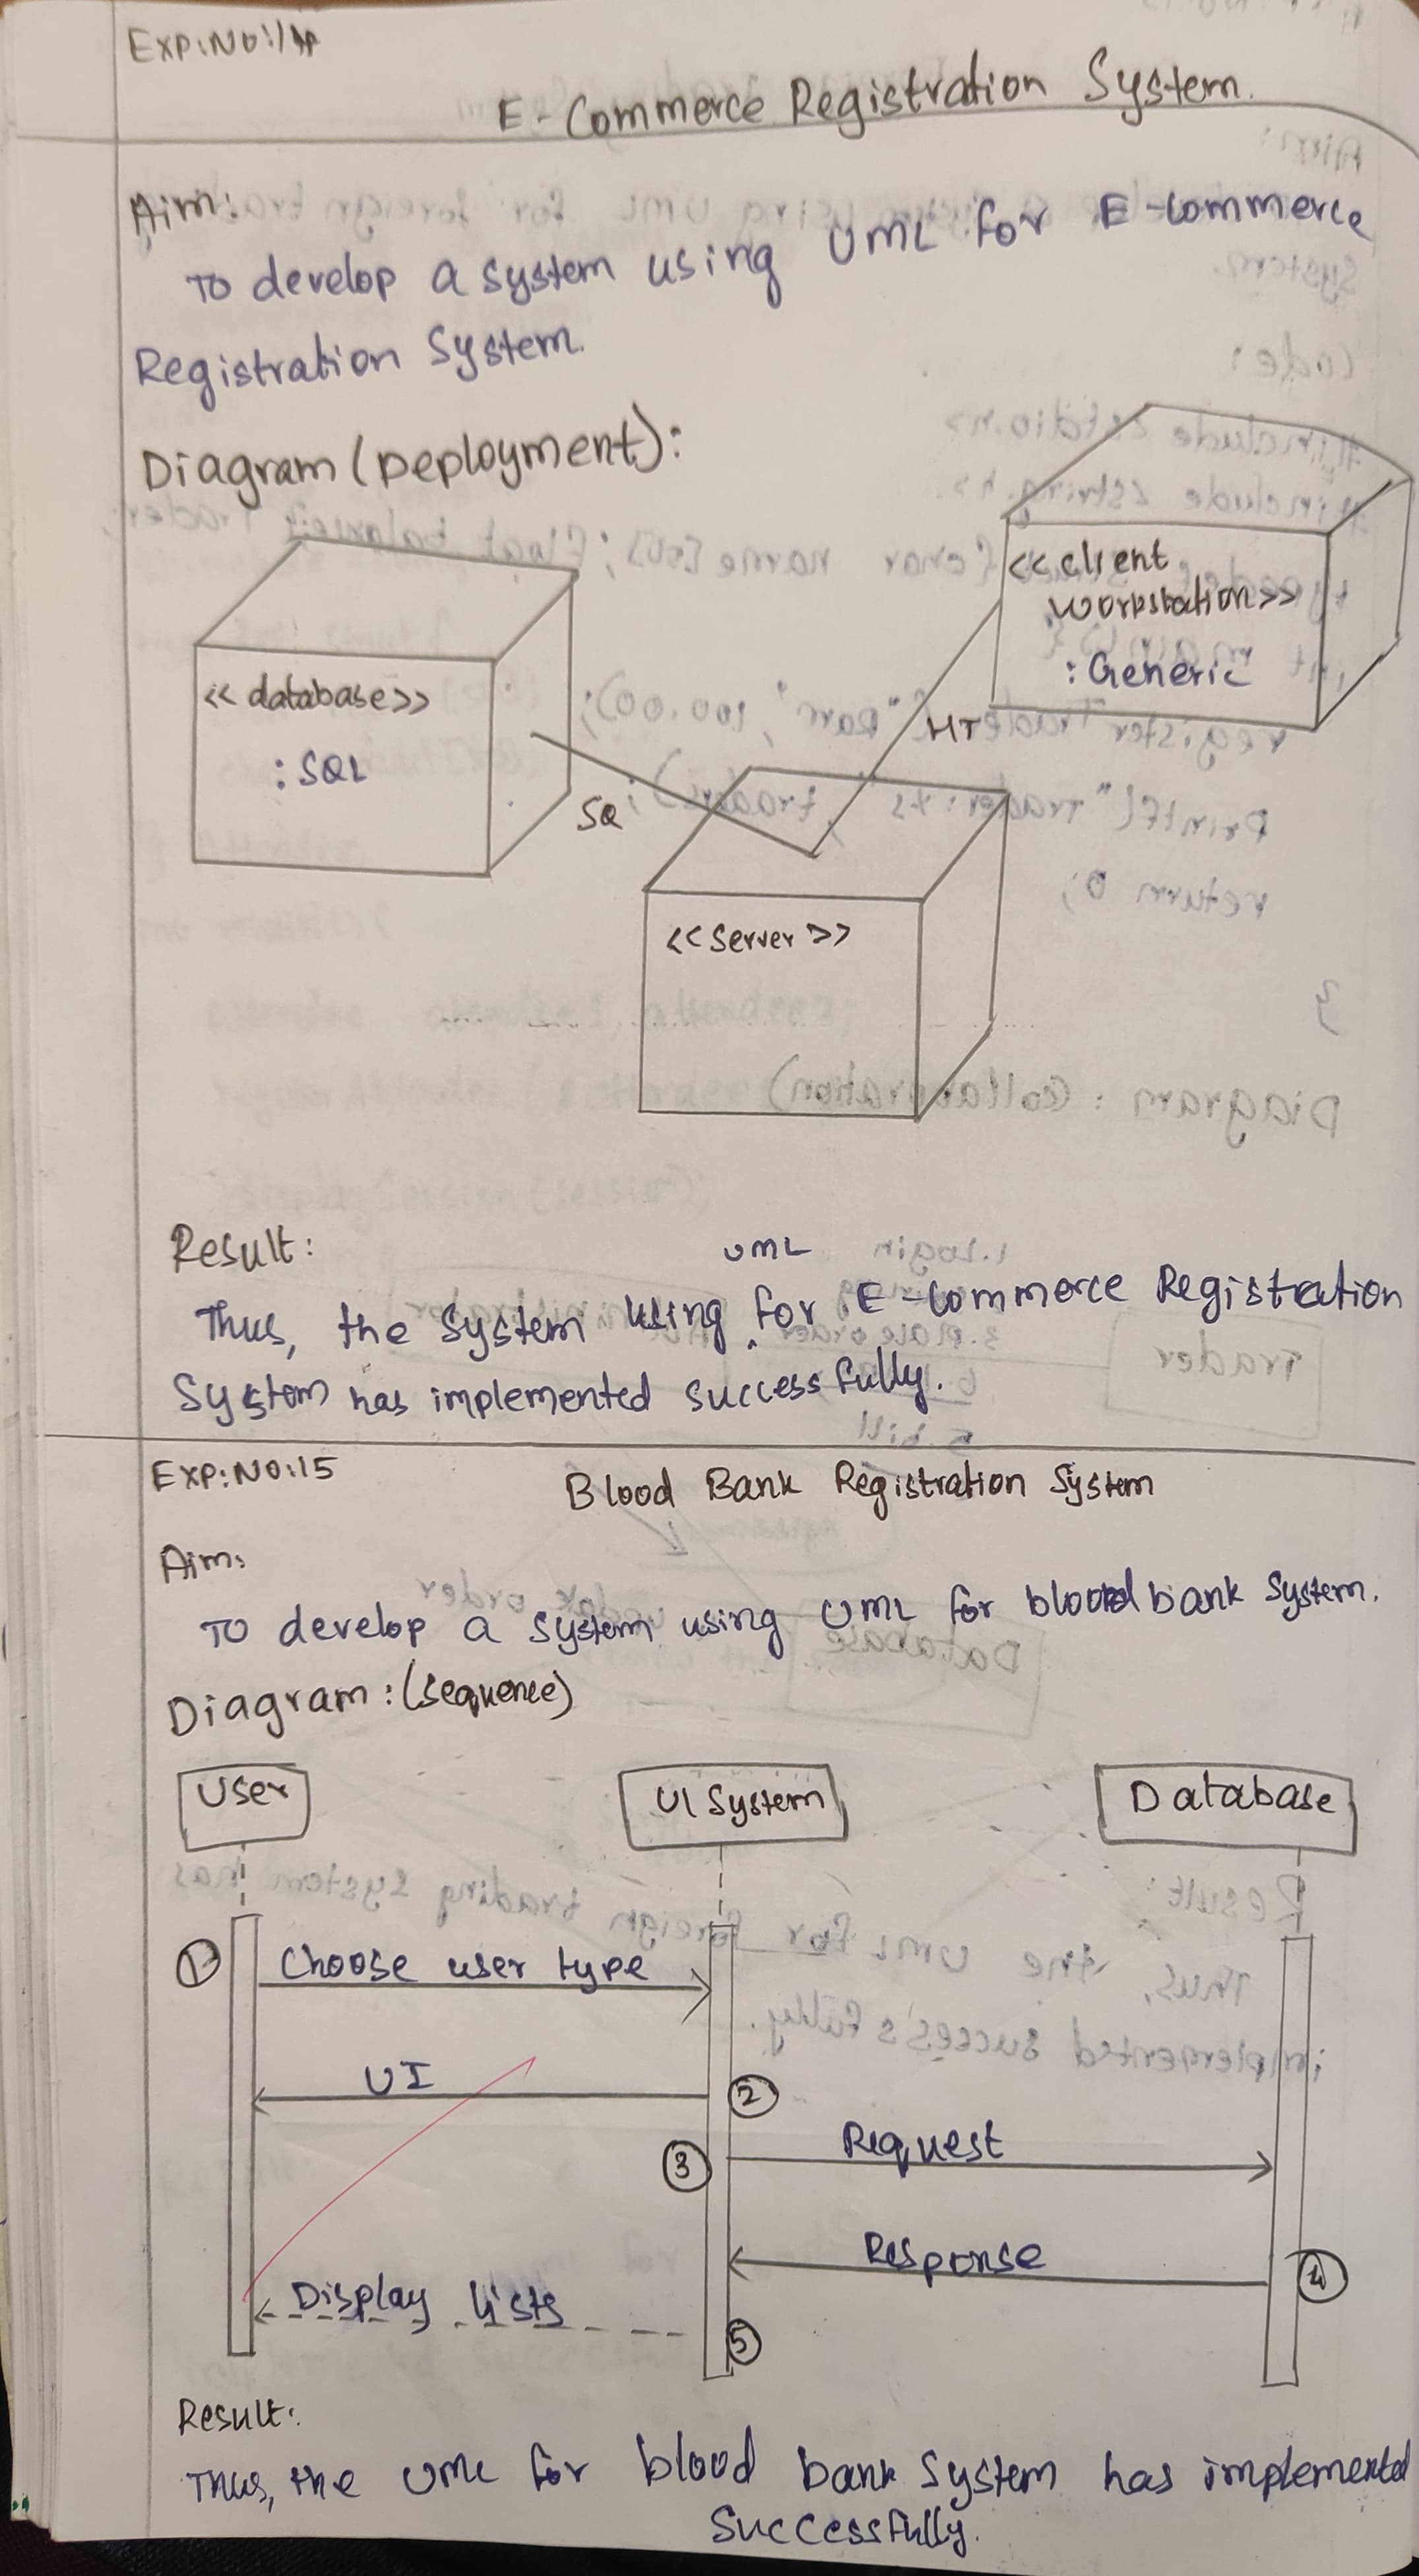 Exp:No:14
E-Commerce Registration System.
Aim:
To develop a system using UML for E-commerce
Registration System.
Diagram (Deployment):
<<client
workstation>>
: Generic
<< database>>
: SQL
HT
SQ
<<Server>>
Result:
UML
Thus, the System using ‸ for E-commerce Registration
System has implemented successfully.
Exp:No:15
Blood Bank Registration System
Aim:
To develop a system using UML for blood bank system.
Diagram: (sequence)
User
UI System
Database
1 Choose user type
UI 2
3 Request
Response 4
Display lists 5
Result:
Thus, the UML for blood bank System has implemented
Successfully.